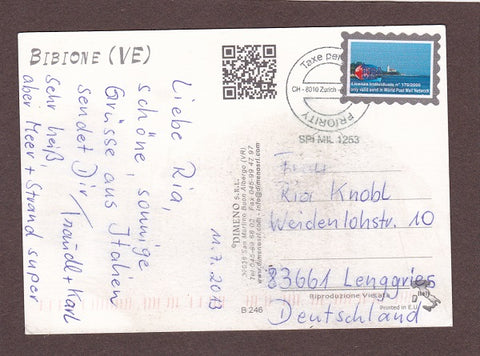 BIBIONE (VE)
Liebe Ria,
schöne, sonnige
Grüsse aus Italien
sendet Dir / Traudl + Karl
Sehr heiß,
aber Meer + Strand super
11.7.2013
©DIMENO s.r.l.
37036 San Martino Buon Albergo (VR)
www.dimenosrl.com - info@dimenosrl.com
B 246
Taxe
CH - 8010 Zurich
PRIORITY
SPI MIL 1253
only valid if sent in World Post Mail Network
Frau
Ria Knobl
Weidenlohstr. 10
83661 Lenggries
Riproduzione Vietata
Printed in E.U.
Deutschland